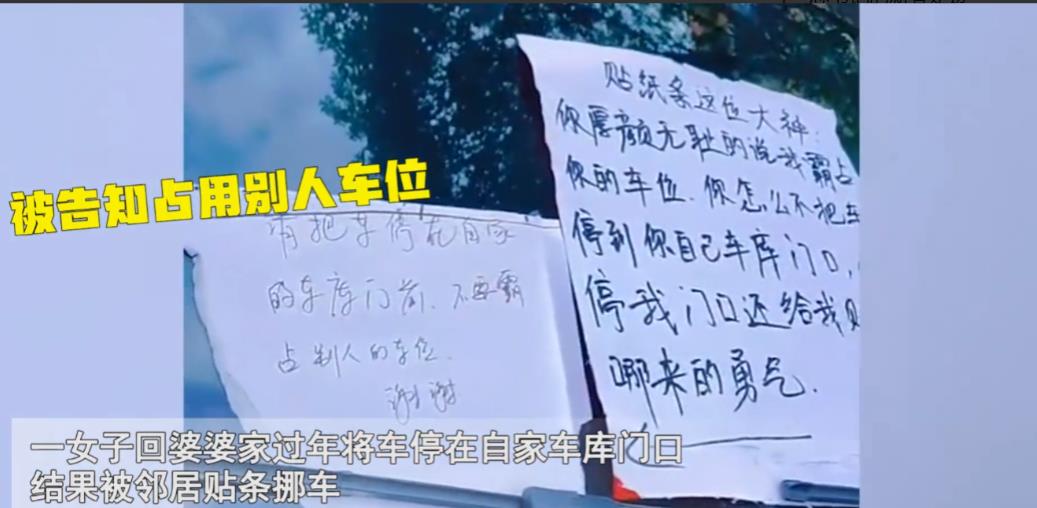 被告知占用别人车位
请把车停在自家
的车库门前.不要霸
占别人的车位.
谢谢
贴纸条这位大神:
你厚颜无耻的说我霸占
你的车位.你怎么不把车
停到你自己车库门口,
停我门口还给我贝
哪来的勇气.
一女子回婆婆家过年将车停在自家车库门口
结果被邻居贴条挪车